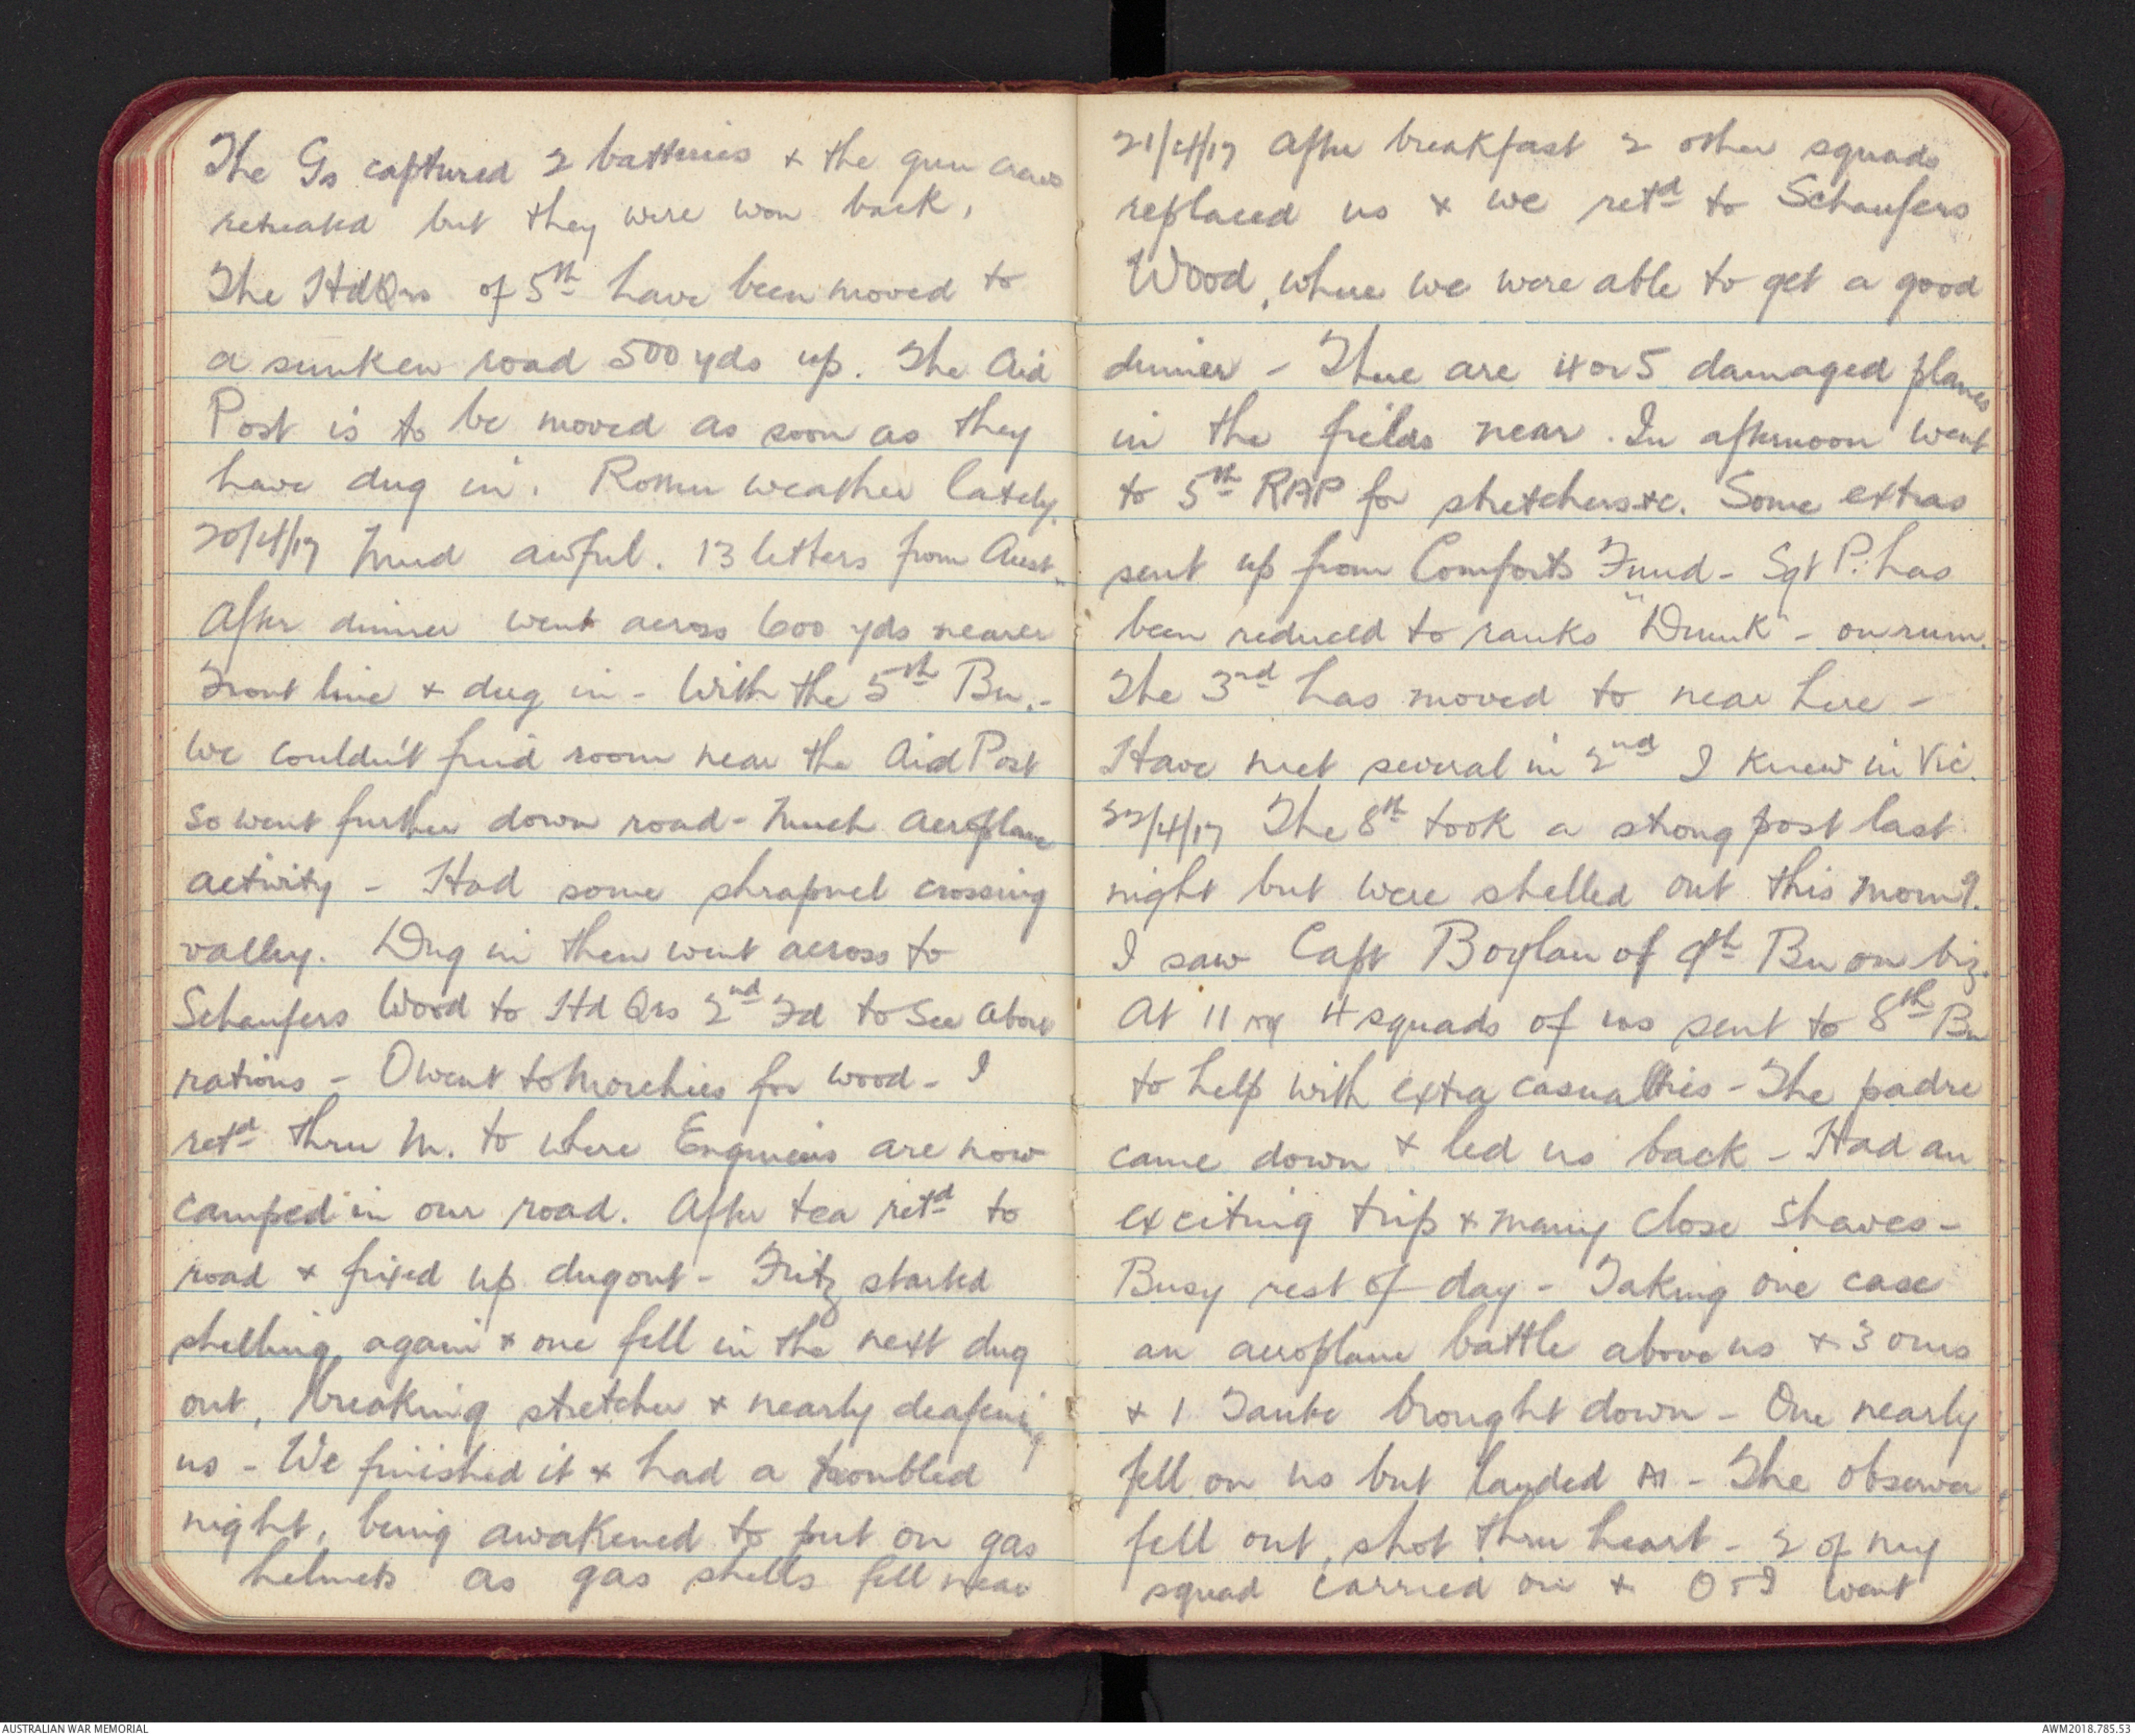 The Gs captured 2 batteries & the gun crews
retreated but they were won back.
The HdQrs of 5th have been moved to
a sunken road 500 yds up. The Aid
Post is to be moved as soon as they
have dug in. Rotten weather lately.
20/4/17 Mud awful. 13 letters from Aust.
After dinner went across 600 yds nearer
Front line & dug in - With the 5th Bn. -
We couldn't find room near the Aid Post
so went further down road - Much aeroplane
activity - Had some shrapnel crossing
valley. Dug in then went across to
Schaufers Wood to Hd Qrs 2nd Fd to see about
rations - O went to Morchies for wood - I
retd thru M. to where Engineers are now
camped in our road. After tea retd to
road & fixed up dugout - Fritz started
shelling again & one fell in the next dug
out, breaking stretcher & nearly deafening
us - We finished it & had a troubled
night, being awakened to put on gas
helmets as gas shells fell near
21/4/17 After breakfast 2 other squads
replaced us & we retd to Schaufers
Wood, where we were able to get a good
dinner - There are 4 or 5 damaged planes
in the fields near. In afternoon went
to 5th RAP for stretchers &c. Some extras
sent up from Comforts Fund - Sgt P. has
been reduced to ranks "Drunk" - on rum.
The 3rd has moved to near here -
Have met several in 2nd I knew in Vic.
22/4/17 The 8th took a strong post last
night but were shelled out this morng.
I saw Capt Boylan of Bn on biz.
At 11 4 squads of us sent to 8th Bn
to help with extra casualties - The padre
came down & led us back - Had an
exciting trip & many close shaves -
Busy rest of day - Taking one case
an aeroplane battle above us & 3 ours
& 1 Taube brought down - One nearly
fell on us but landed A1 - The observer
fell out, shot thru heart - 2 of my
squad carried on & O & I went
AUSTRALIAN WAR MEMORIAL
AWM2018.785.53